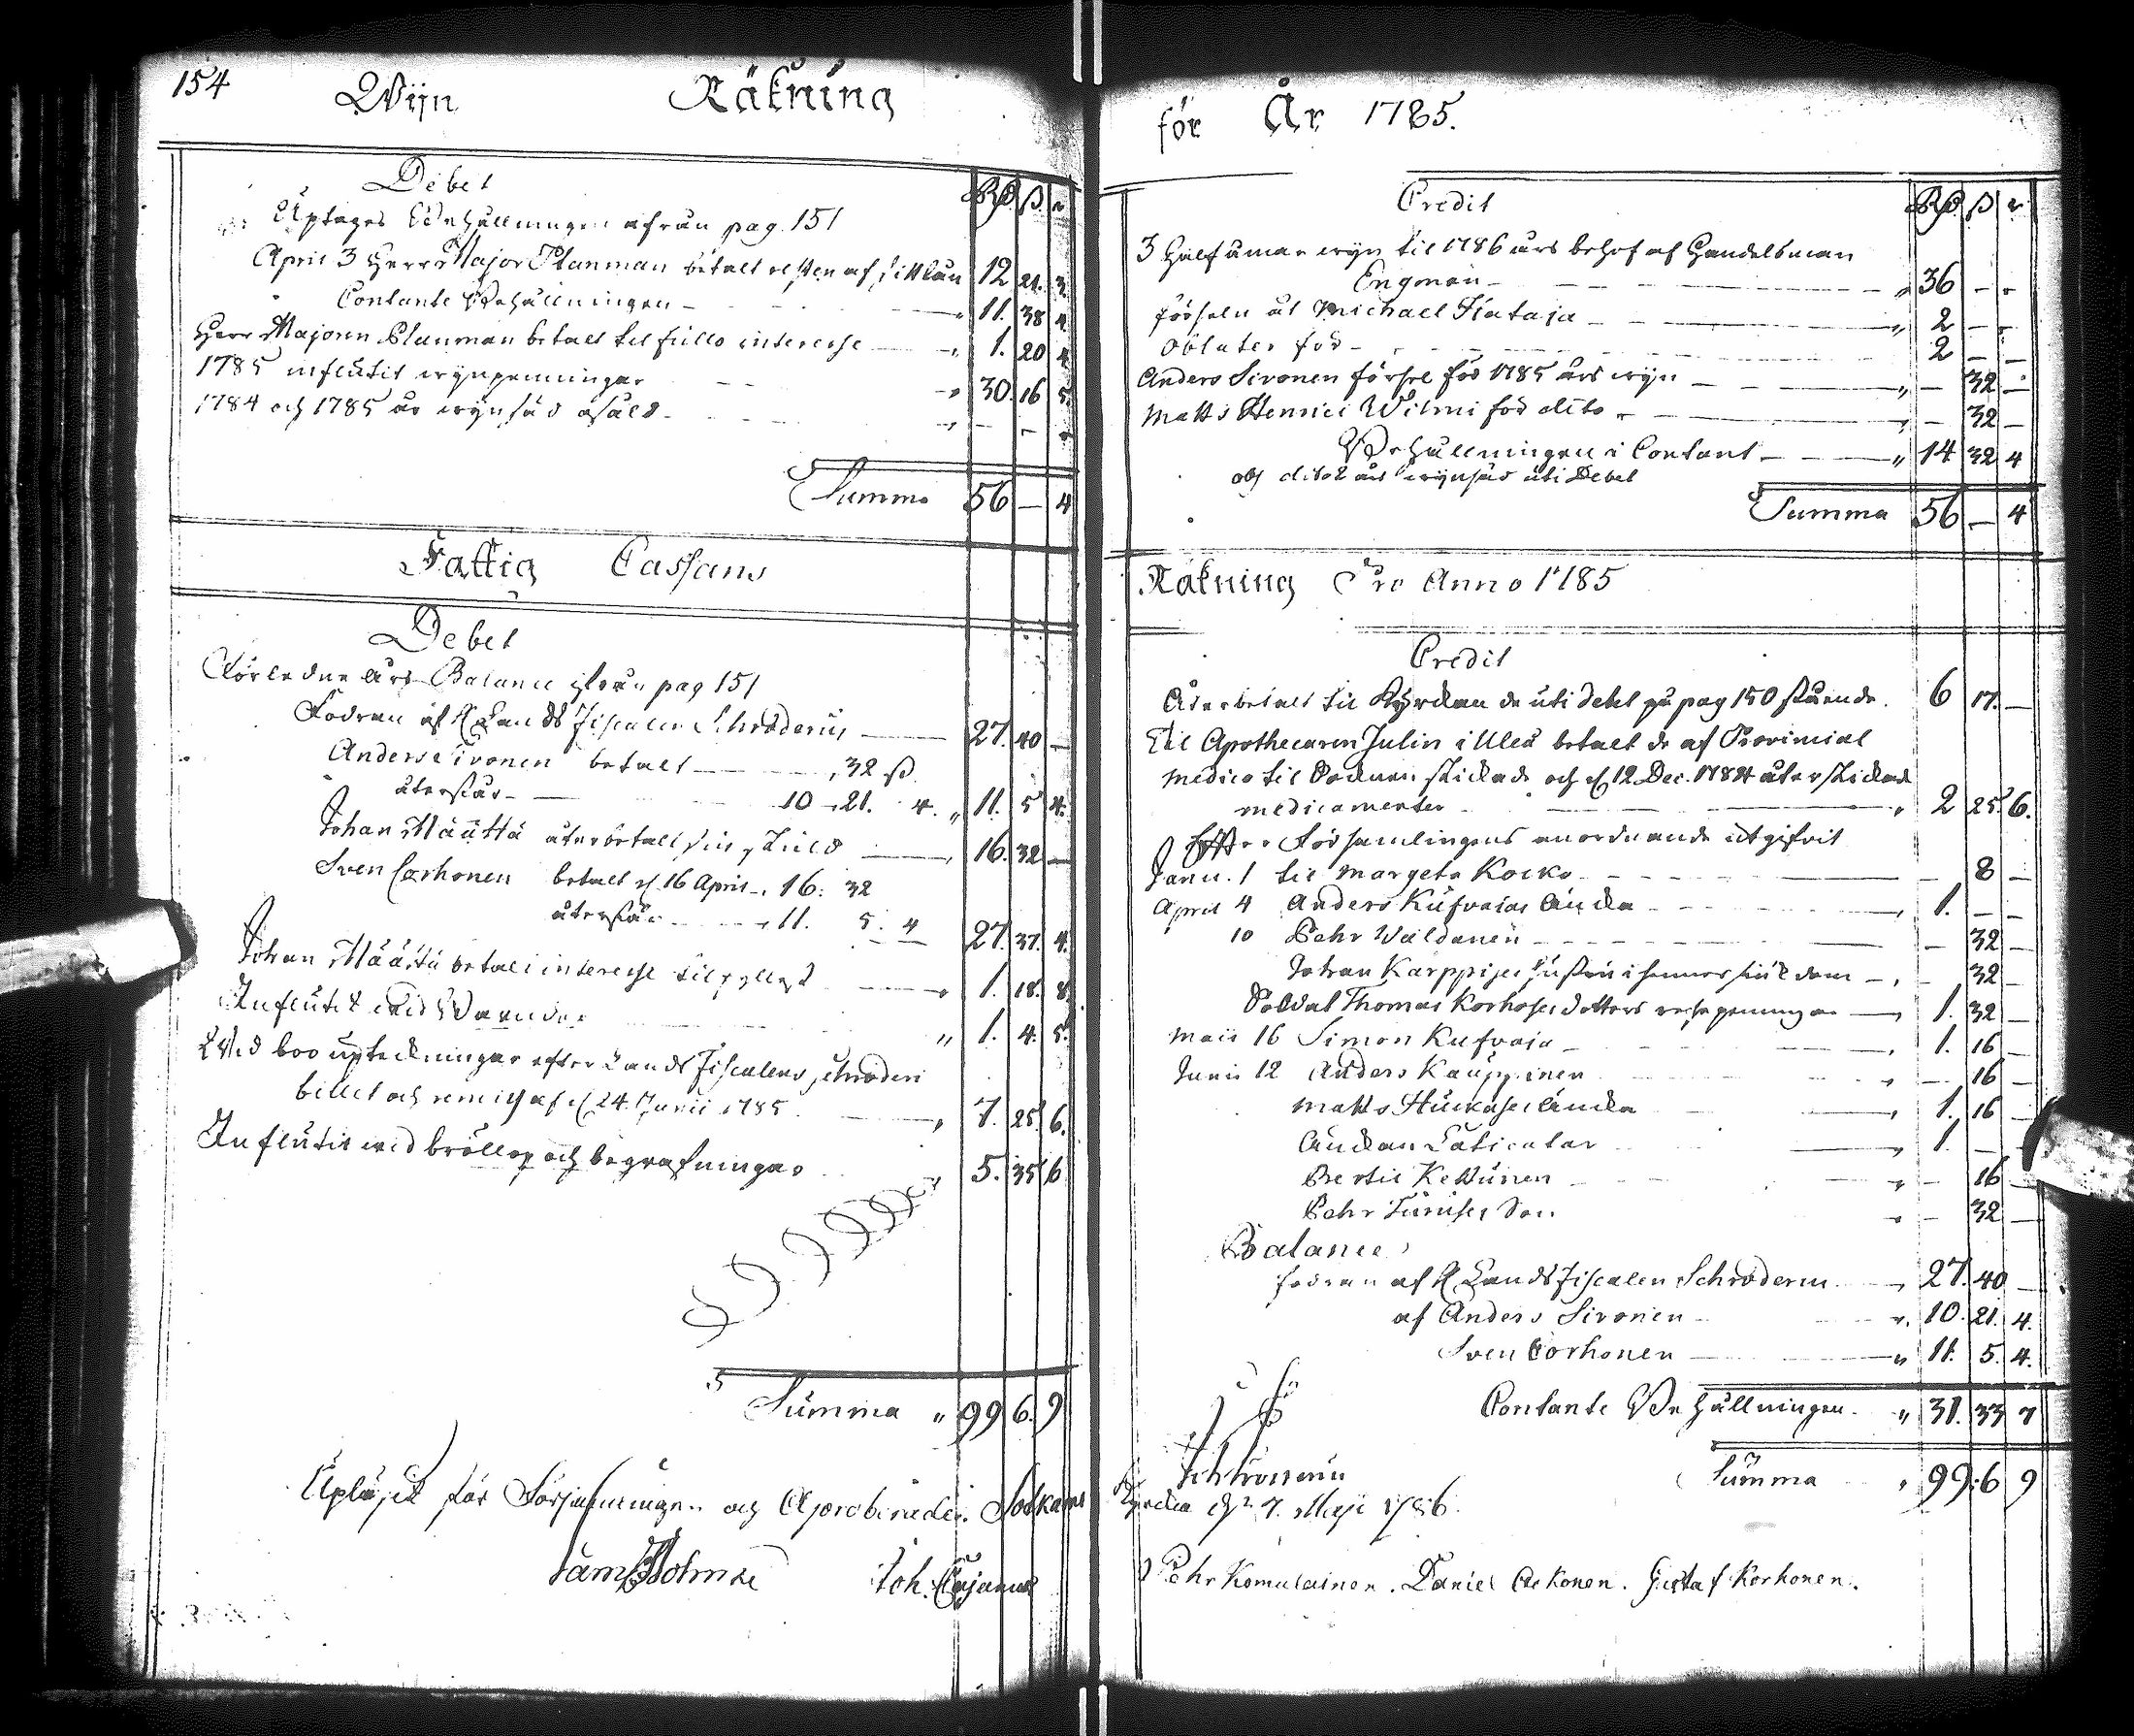 154
Wijn Räkning
Debet Rd ß r
Uptages Behållningen afrån pag. 151
April 3 Herr Major Planman betalt resten af sitt lån 12 21. 3.
Contante Behållningen 11. 38 4
Herr Majoren Planman betalt til fullo interesse 1. 20 4
1785 influtit wijnpenningar 30. 16 5.
1784 och 1785 år wijnsäd osåld
Summa 56 — 4
Fattig Cassans
Debet
Förledne års Balance ifrån pag 151
Fodran af H Lands Fiscalen Schroderus 27. 40 —
Anders Sivonen betalt 32 ß.
återstår 10 21. 4. 11. 5 4.
Johan Määttä återbetalt sin skuld 16. 32 —
Sven Corhonen betalt d 16 April 16. 32
återstår 11. 5. 4 27. 37. 4.
Johan Määttä betalt interesse til fyllest 1. 18. 8
Influtit wid 1. 4. 5.
Wid boo upteckningar efter Lands Fiscalens Schroderi
billet och af d 24 Junii 1785 7. 25. 6.
Influtit wid bröllop och begrafningar 5. 35 6
Summa 99 6. 9
Upläsit för Församlingen och Approberades. Sotkamo
Joh. Cajanus
för År 1785.
Credit Rd ß r
3 Halfåmar wijn til 1786 års behof af Handelsman
Engman 36 — —
förseln åt Michael Kataja 2 — —
Oblater för 2 — —
Anders Sivonen försel för 1785 års wijn — 32 —
Matts Henrici Wilmi för dito — 32 —
Behållningen i Contant 14 32 4
och dito års wijnsäd uti Debet
Summa 56 — 4
Räkning Pro Anno 1785
Credit
Återbetalt til Kyrckan de uti debet på pag 150 stående 6 17. —
Til Apothecaren Julin i Uleå betalt de af Provincial
Medico til Socknen skickade och d 12 Dec. 1784 återskickade
medicamenter 2 25 6.
Efter Församlingens anordnande utgifvit
Janu. 1 til Margeta Kocko — 8 —
April 4 Anders Kufvajas Äncka 1. — —
10 Pehr Wäldänen — 32 —
Johan Karppises hustru i hennes siukdom — 32 —
Soldat Thomas Korhoses dotters resepenningar 1. 32 —
Maii 16 Simon Kufvaja 1. 16 —
Junii 12 Anders Kauppinen — 16 —
Matts Äncka 1. 16 —
Änckan Laticatar 1. — —
Bertil Kettunen — 16 —
Pehr Son — 32 —
Balance
fodran af H Lands Fiscalen Schroderus 27. 40 —
af Anders Sivonen 10. 21. 4.
Sven Corhonen 11. 5. 4.
Contante Behållningen 31. 33 7
Summa 99. 6 9
Kyrcka d 7. Maji 1786.
Pehr Komulainen. Daniel Ockonen. Gustaf Korhonen.